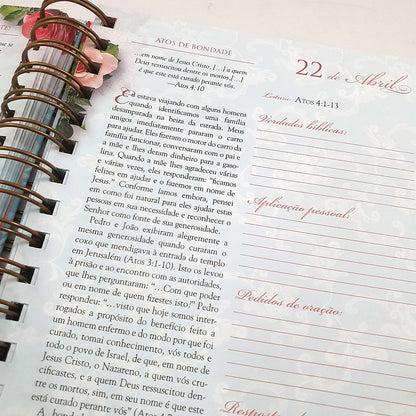 ATOS DE BONDADE
...em nome de Jesus Cristo, [...] a quem
Deus ressuscitou dentre os mortos, [...]
é que este está curado perante vós.
—Atos 4:10
Eu estava viajando com alguns homens
quando identificamos uma família
desamparada na beira da estrada. Meus
amigos imediatamente pararam o carro
para ajudar. Eles fizeram o motor do carro da
família funcionar, conversaram com o pai e
a mãe e lhes deram dinheiro para a gaso-
lina. Quando a mãe lhes agradeceu várias
e várias vezes, eles responderam: "ficamos
felizes em ajudar e o fizemos em nome de
Jesus." Conforme íamos embora, pensei
em como foi natural para eles ajudar estas
pessoas em sua necessidade e reconhecer o
Senhor como fonte de sua generosidade.
Pedro e João exibiram alegremente a
mesma generosidade quando curaram o
coxo que mendigava à entrada do templo
em Jerusalém (Atos 3:1-10). Isto os levou
à prisão e ao encontro com as autoridades,
que lhes perguntaram: "...Com que poder
ou em nome de quem fizestes isto?" Pedro
respondeu: "...visto que hoje somos inter-
rogados a propósito do benefício feito a
um homem enfermo e do modo por que foi
curado, tomai conhecimento, vós todos e
todo o povo de Israel, de que, em nome de
Jesus Cristo, o Nazareno, a quem vós cru-
cificastes, e a quem Deus ressuscitou den-
tre os mortos, sim, em seu nome é que este
está curado perante vós" (Atos
A bondade
22 de Abril
Leitura: Atos 4:1-13
Verdades bíblicas:
Aplicação pessoal:
Pedidos de oração: